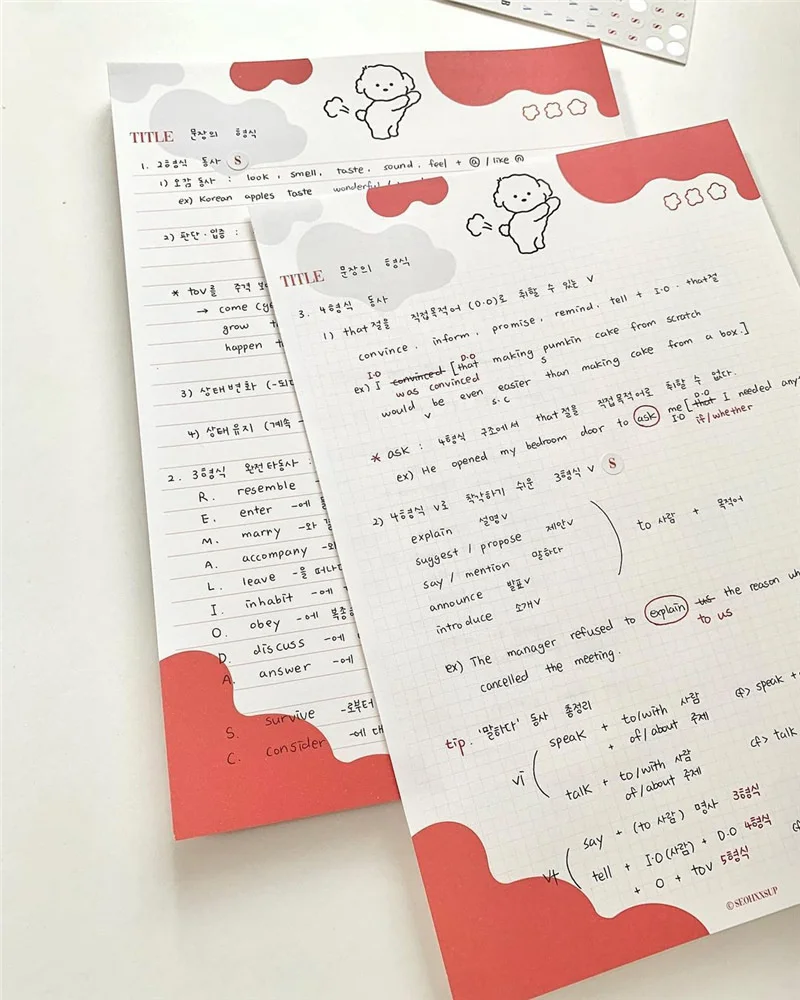 TITLE 문장의 형식
1. 2형식 동사 S
1) 오감 동사 : look, smell, taste, sound, feel + ⓐ / like ⓝ
ex) Korean apples taste wonderful
2) 판단·입증 :
* tov를 주격
→ come
grow
happen
3) 상태변화 (~되다
4) 상태유지 (계속
2. 3형식 완전타동사 :
R. resemble
E. enter ~에
M. marry ~와
A. accompany ~와
L. leave ~을 떠나다
I. inhabit ~에
O. obey ~에 복종
D. discuss ~에
A. answer ~에
S. survive ~로부터
C. consider ~에 대
TITLE 문장의 형식
3. 4형식 동사
1) that절을 직접목적어 (D.O)로 취할 수 있는 V
convince, inform, promise, remind, tell + I.O. that절
I.O D.O
ex) I convinced [that making pumkin cake from scratch
was convinced S
would be even easier than making cake from a box.]
V S.C
* ask : 4형식 구조에서 that절을 직접목적어로 취할 수 없다.
D.O
ex) He opened my bedroom door to ask me [that I needed any
I.O if/whether
2) 4형식 V로 착각하기 쉬운 3형식 V S
explain 설명V
suggest / propose 제안V
say / mention 말하다
announce 발표V
introduce 소개V
to 사람 + 목적어
ex) The manager refused to explain us the reason wh
to us
cancelled the meeting.
tip. '말하다' 동사 총정리
vi
speak + to/with 사람
+ of/about 주제
cf> speak +
talk + to/with 사람
of/about 주제
cf> talk
vt
say + (to 사람) 명사 3형식
tell + I.O(사람) + D.O 4형식
+ O + tov 5형식
© SEOHXXSUP